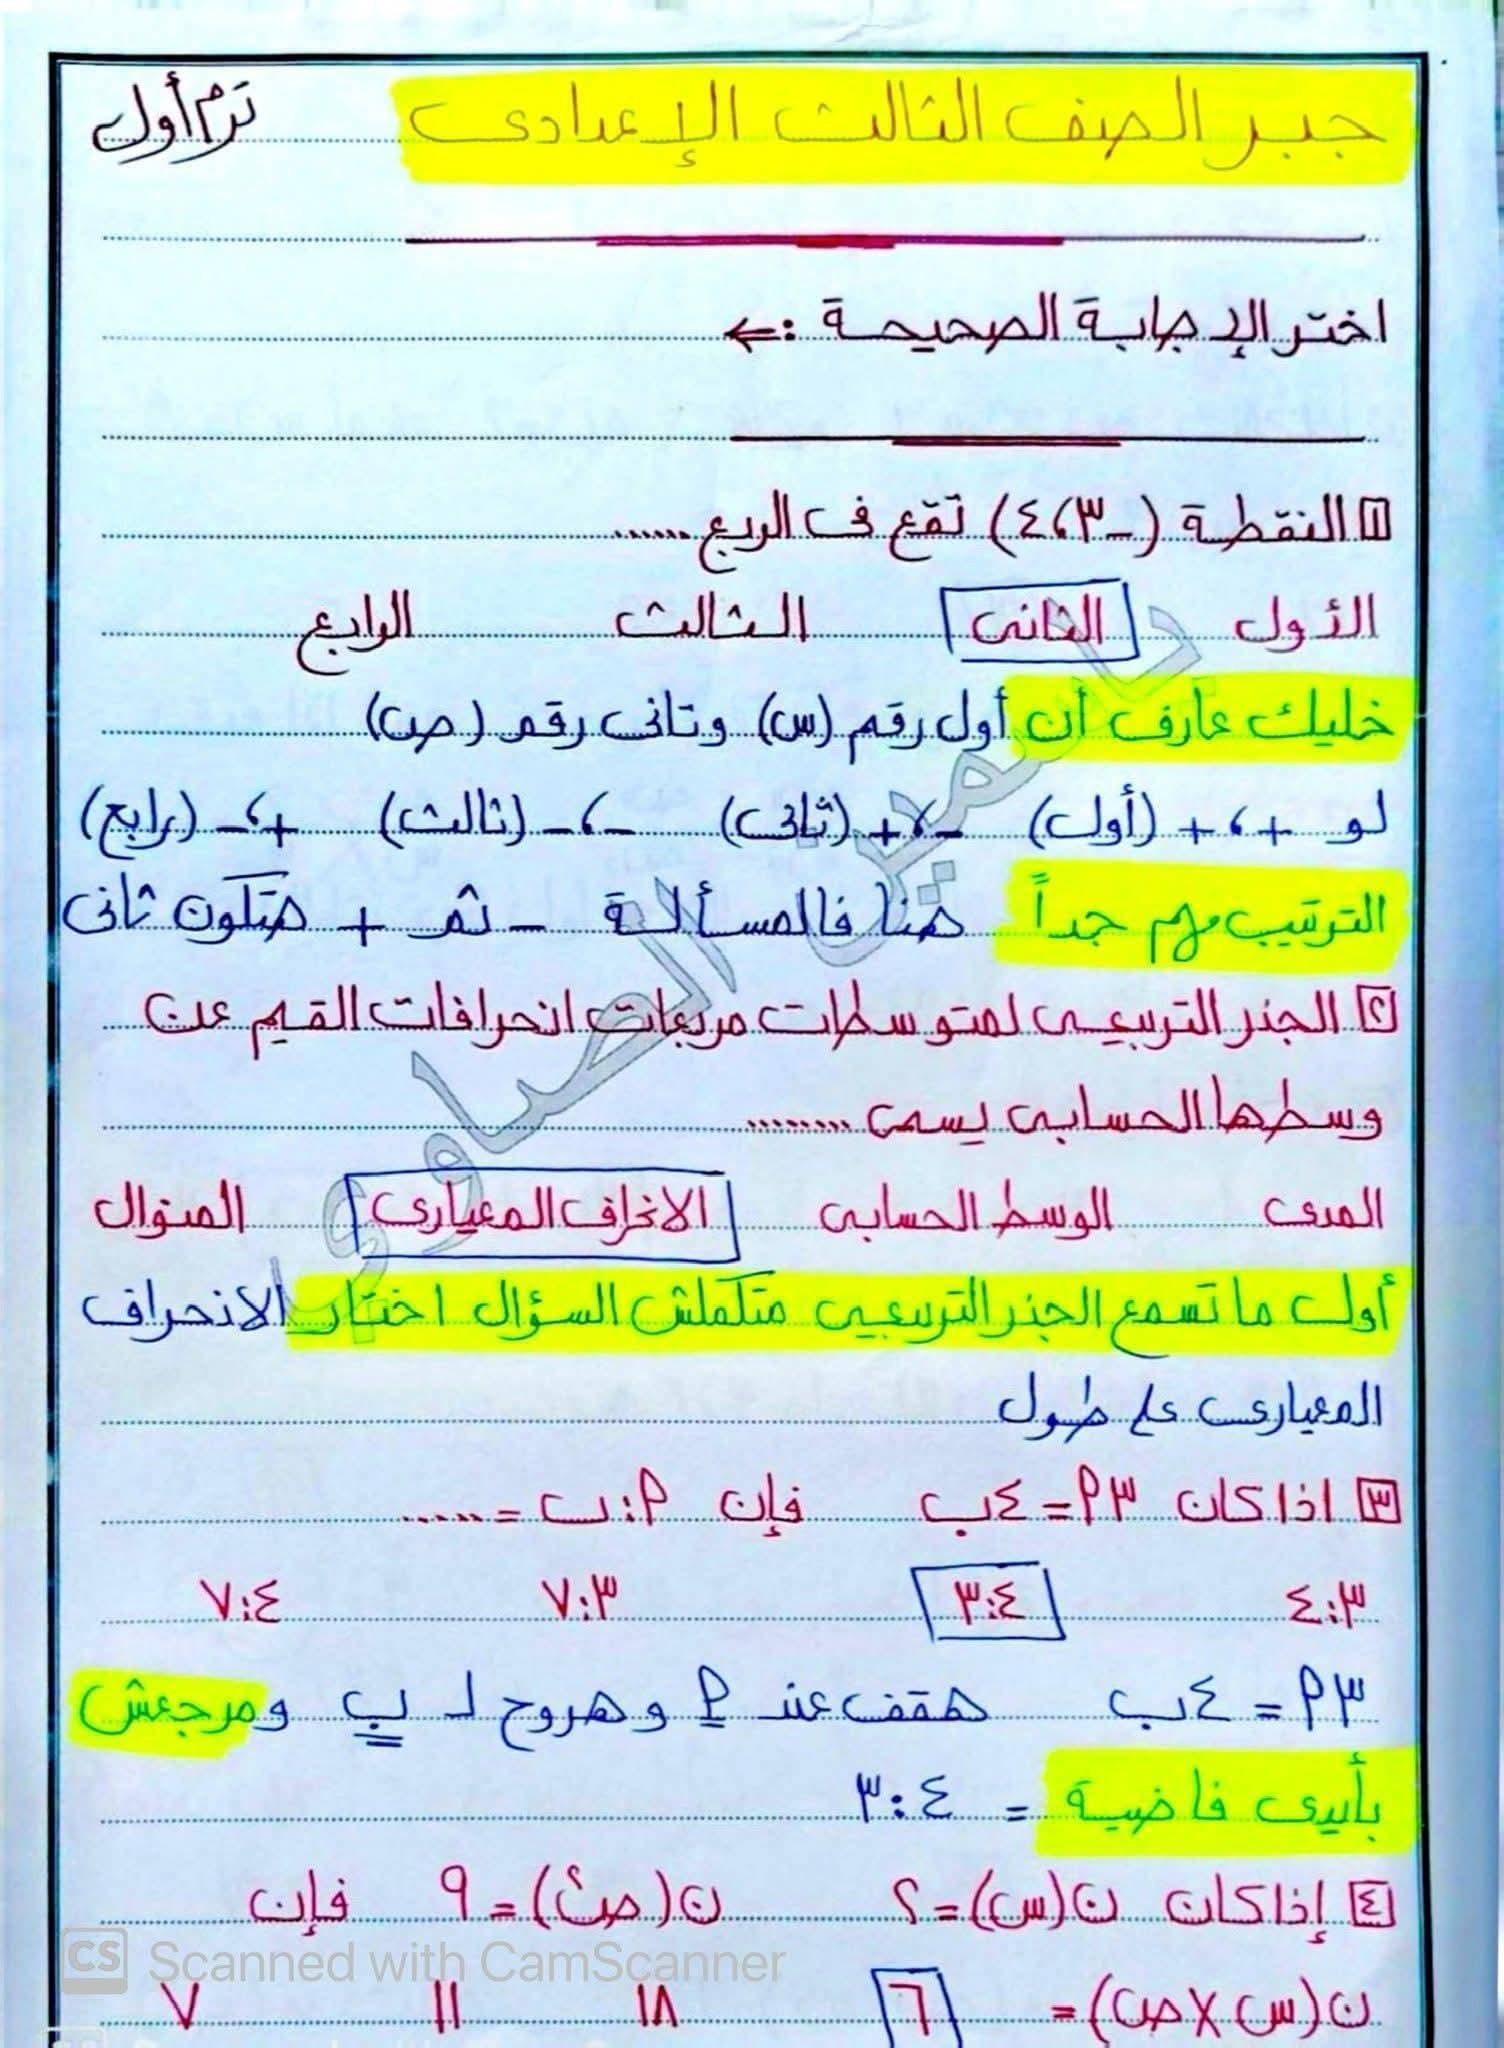 جبر الصف الثالث الإعدادى ترم أول
اختر الإجابة الصحيحة :←
١ النقطة (-٣،٤) تقع فى الربع ......
الأول الثانى الثالث الرابع
خليك عارف أن أول رقم (س) وتانى رقم (ص)
لو +،+ (أول) -،+ (ثانى) -،- (ثالث) +،- (رابع)
الترتيب مهم جداً هنا فالمسألة - ثم + هتكون ثانى
٢ الجذر التربيعى لمتوسطات مربعات انحرافات القيم عن
وسطها الحسابى يسمى ........
المدى الوسط الحسابى الانحراف المعيارى المنوال
أول ما تسمع الجذر التربيعى متكملش السؤال اختار الانحراف
المعيارى على طول
٣ اذا كان ٣أ = ٤ب فإن أ:ب = ......
٤:٣ ٣:٤ ٧:٣ ٧:٤
٣أ = ٤ب هقف عند أ وهروح لـ ب ومرجعش
بأيدى فاضية = ٣:٤
٤ إذا كان ن(س)=٢ ن(ص٢)=٩ فإن
ن(س×ص)= ٦ ١٨ ١١ ٧
CS Scanned with CamScanner
ياسمين الصاوى